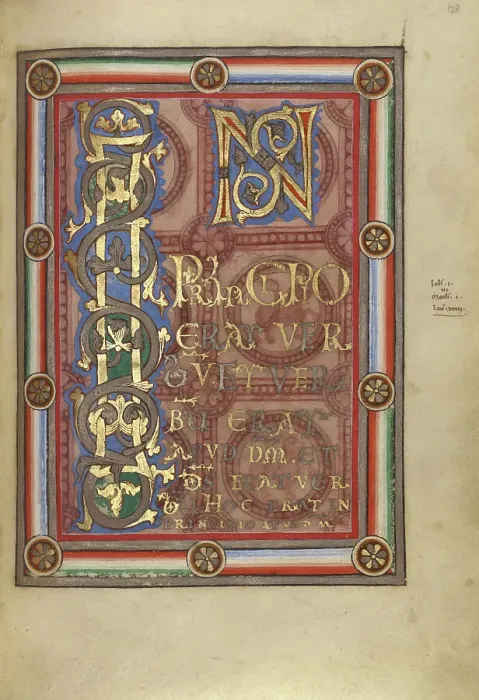 128
IN
PRINCIPIO
ERAT VER
BV̅ ET VER
BV̅ ERAT
APVD D̅M. ET
D̅S ERAT VER
BV̅ HOC ERAT IN
PRINCIPIO APVD D̅M